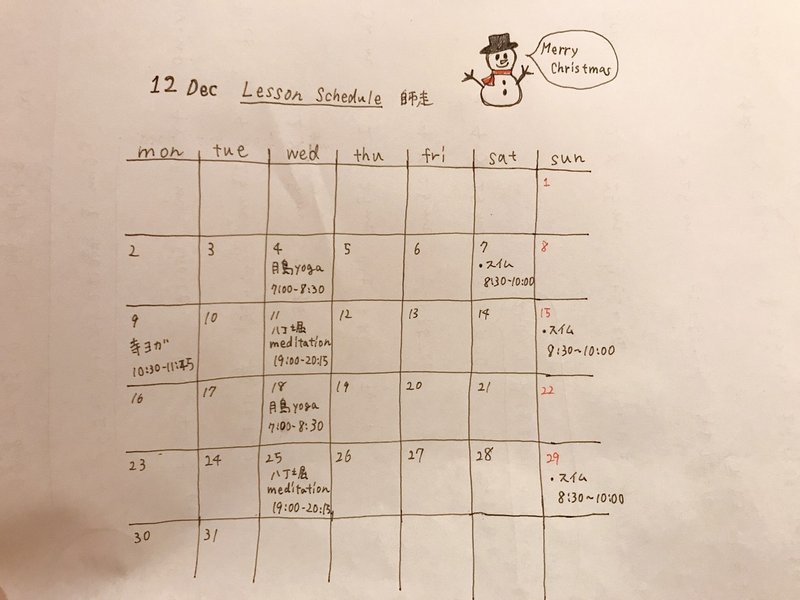 Merry
Christmas
12 Dec Lesson Schedule 師走
mon tue wed thu fri sat sun
1
2 3 4 5 6 7 8
月島yoga
7:00-8:30
・スイム
8:30-10:00
9 10 11 12 13 14 15
寺ヨガ
10:30-11:45
八丁堀
meditation
19:00-20:15
・スイム
8:30~10:00
16 17 18 19 20 21 22
月島yoga
7:00-8:30
23 24 25 26 27 28 29
八丁堀
meditation
19:00-20:15
・スイム
8:30~10:00
30 31